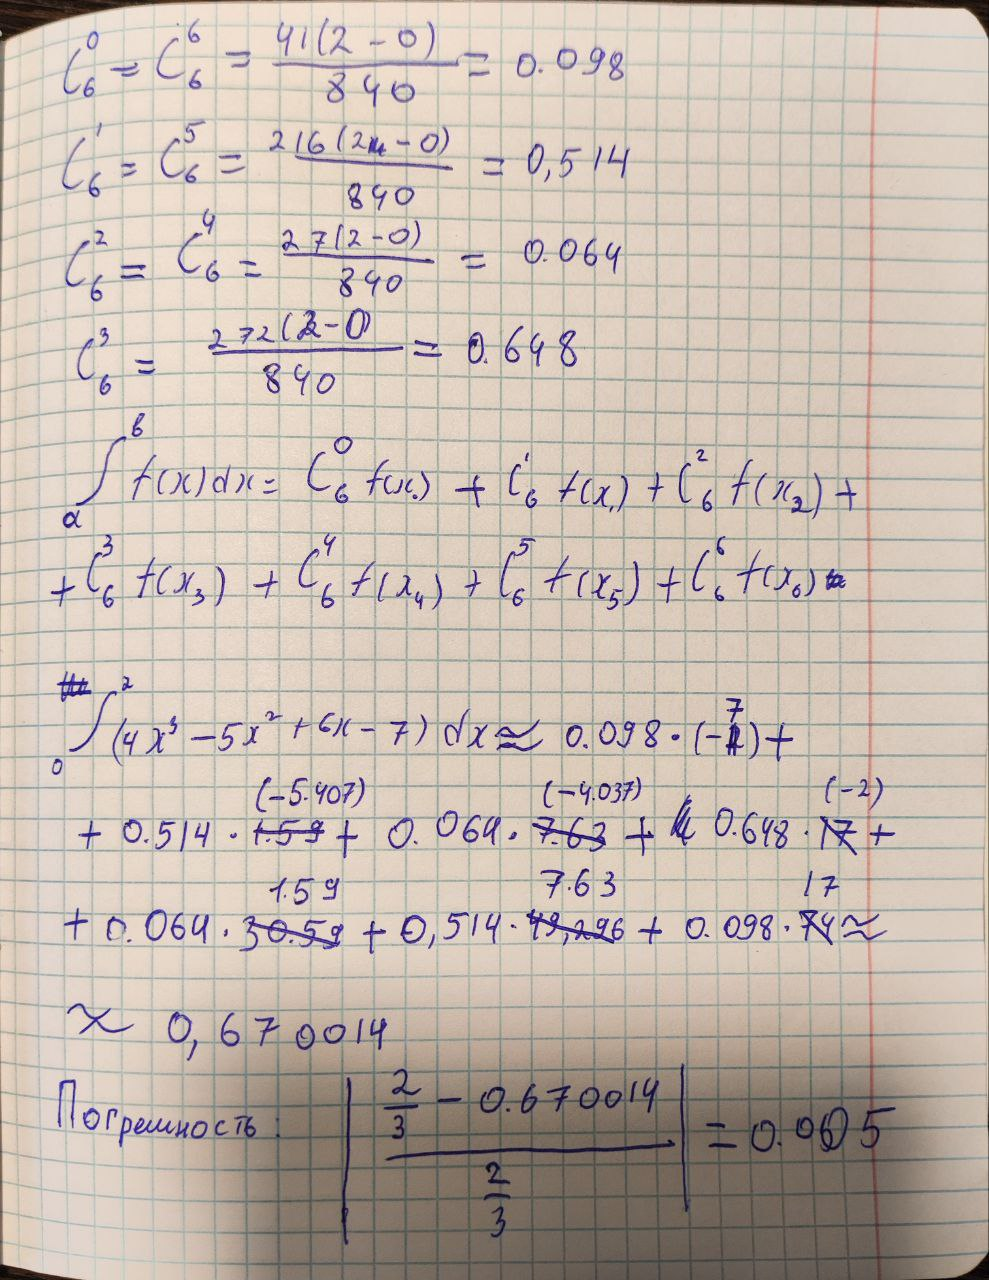 C₆⁰ = C₆⁶ = 41(2 - 0)/840 = 0.098
C₆¹ = C₆⁵ = 216(2 - 0)/840 = 0,514
C₆² = C₆⁴ = 27(2-0)/840 = 0.064
C₆³ = 272(2-0)/840 = 0.648
∫ₐᵇ f(x)dx = C₆⁰ f(x₀) + C₆¹ f(x₁) + C₆² f(x₂) +
+ C₆³ f(x₃) + C₆⁴ f(x₄) + C₆⁵ f(x₅) + C₆⁶ f(x₆)
∫₀² (4x³ - 5x² + 6x - 7) dx ≈ 0.098 · (-7) +
(-5.407) (-4.037) (-2)
+ 0.514 · 1.59 + 0.064 · 7.63 + 0.648 · 17 +
1.59 7.63 17
+ 0.064 · 30.59 + 0,514 · 49,296 + 0.098 · 74 ≈
≈ 0,670014
Погрешность: |(2/3 - 0.670014)/(2/3)| = 0.005